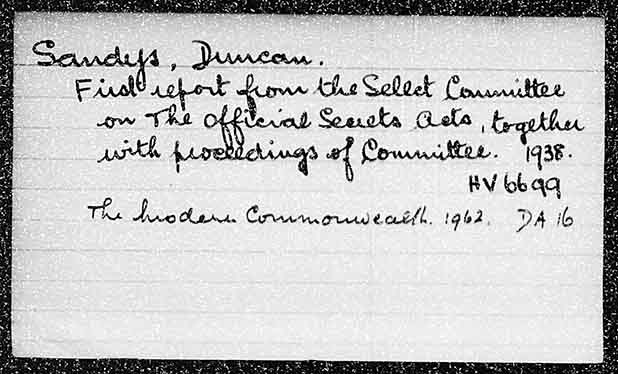 Sandys, Duncan.
First report from the Select Committee
on The Official Secrets Acts, together
with proceedings of Committee. 1938.
HV6699
The Modern Commonwealth. 1962. DA 16